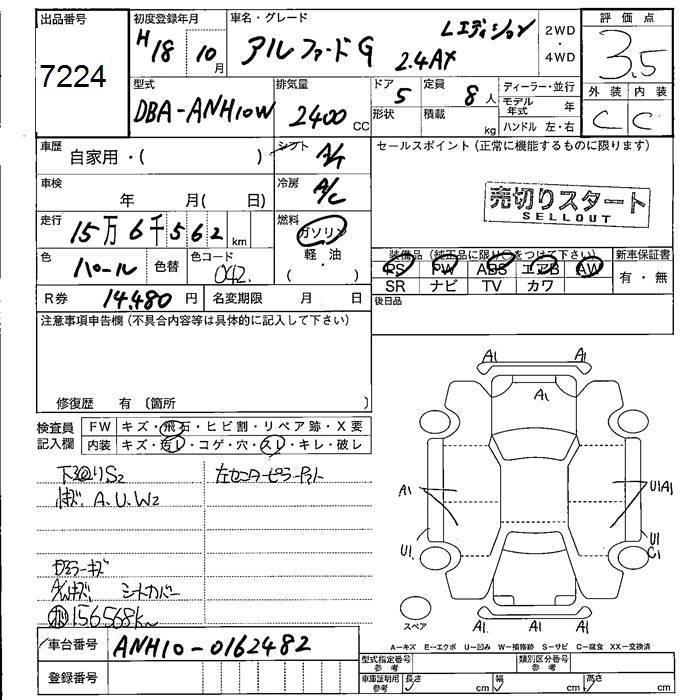 出品番号
7224
初度登録年月
H18 10月
車名・グレード
アルファードG Lエディション
2.4AX
2WD
・
4WD
評価点
3.5
外装 内装
C C
型式
DBA-ANH10W
排気量
2400 CC
ドア
5
形状
定員
8人
積載
kg
ディーラー・並行
モデル年式 年
ハンドル 左・右
車歴
自家用・( )
シフト
A/T
セールスポイント(正常に機能するものに限ります)
売切りスタート
SELLOUT
車検
年 月( 日)
冷房
A/C
走行
15万6千562km
燃料
ガソリン
軽油
( )
色
パール
色替
色コード
042.
装備品(純正品に限り○をつけて下さい)
PS PW ABS エアB AW
SR ナビ TV カワ
新車保証書
有・無
R券 14,480円
名変期限 月 日
後日品
注意事項申告欄(不具合内容等は具体的に記入して下さい)
修復歴 有(箇所 )
検査員記入欄
FW キズ・飛石・ヒビ割・リペア跡・X要
内装 キズ・汚レ・コゲ・穴・スレ・キレ・破レ
下回りS2
キズ A.U.W2
左センターピラー
A/Wキズ シートカバー
156568km
車台番号 ANH10-0162482
登録番号
A1 A1
A1
A1
U1
U1A1
U1
C1
スペア
A1 A1 A1
A-キズ E-エクボ U-凹み W-補修跡 S-サビ C-腐食 XX-交換済
型式指定番号 参考
類別区分番号 参考
車庫証明 参考 長さ cm 幅 cm 高さ cm